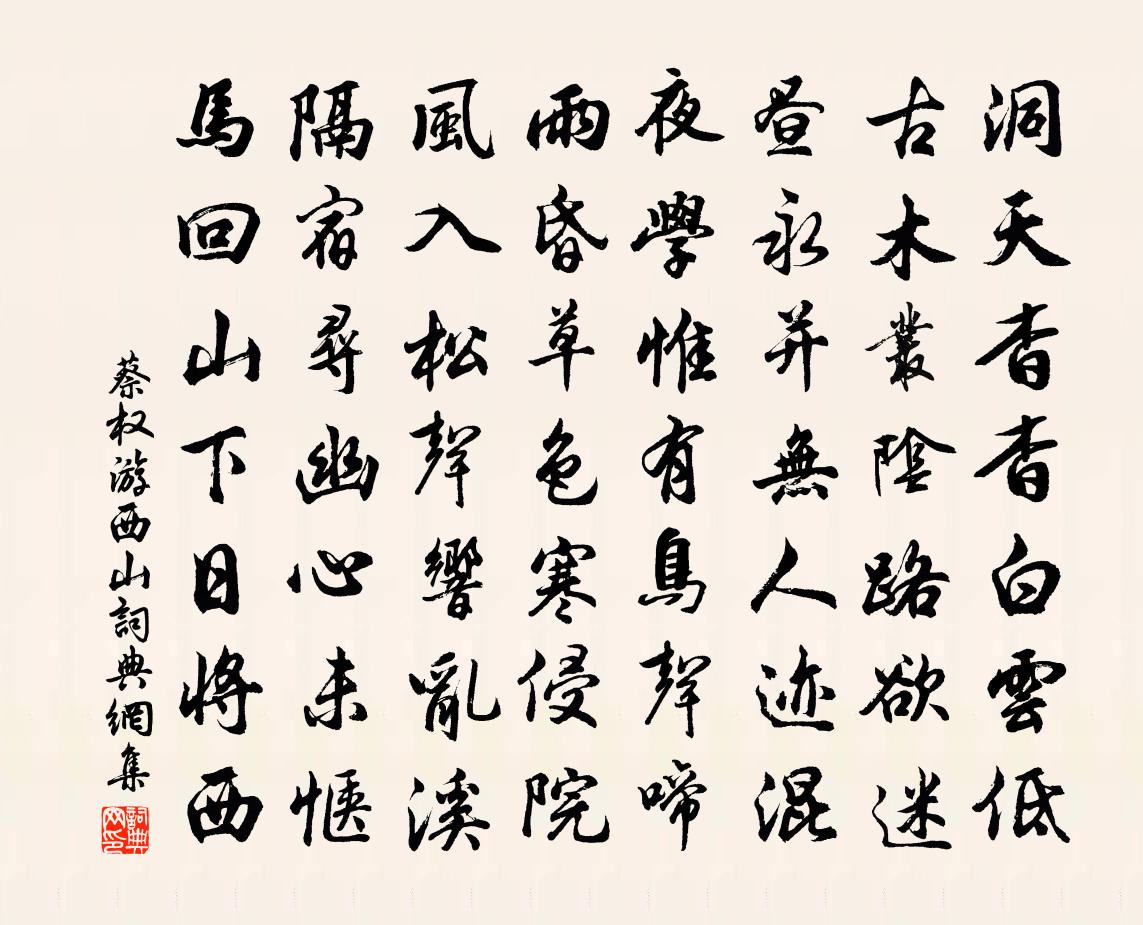 洞天杳杳白雲低
古木叢陰路欲迷
昼永并無人迹混
夜學惟有鳥聲啼
雨昏草色寒侵院
風入松聲響亂溪
隔宿尋幽心未愜
馬回山下日將西
蔡权游西山詞典網集
詞典网印